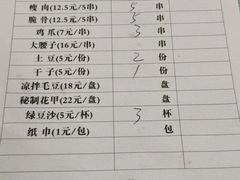 瘦肉(12.5元/5串) 5 串
脆骨(12.5元/5串) 5 串
鸡爪(7元/串) 3 串
大腰子(16元/串) 串
土豆(5元/份) 2 份
干子(5元/份) 1 份
凉拌毛豆(18元/盘) 盘
秘制花甲(22元/盘) 盘
绿豆沙(5元/杯) 3 杯
纸巾(1元/包) 包